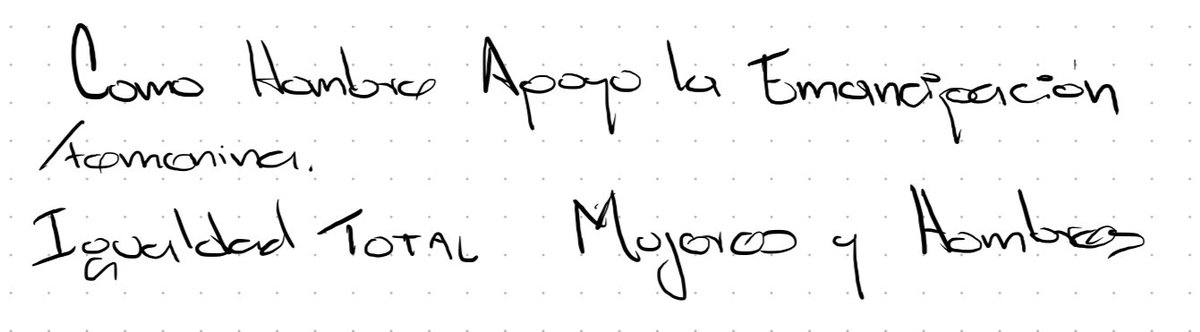 Como Hombre Apoyo la Emancipación
femenina.
Igualdad TOTAL Mujeres y Hombres